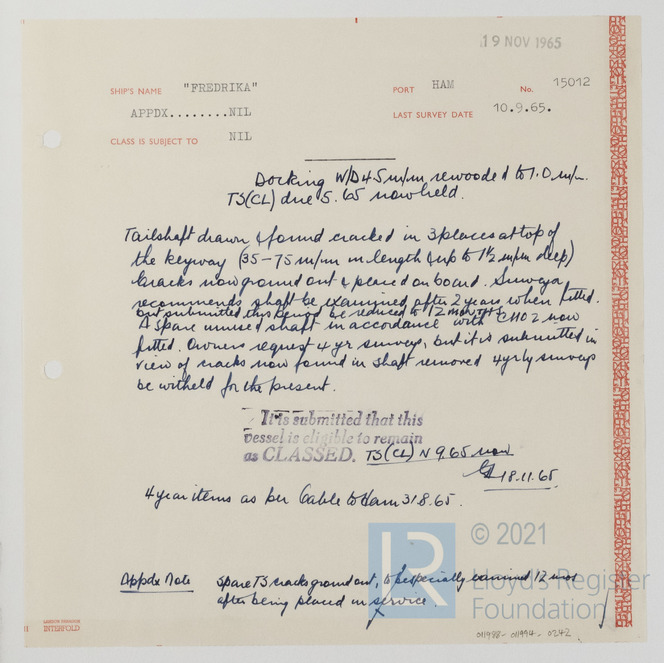 19 NOV 1965
SHIP'S NAME "FREDRIKA" PORT HAM No. 15012
APPDX........NIL LAST SURVEY DATE 10.9.65.
CLASS IS SUBJECT TO NIL
Docking W/D 4.5 m/m rewooded to 1.0 m/m.
TS(CL) due 5.65 now held.
Tailshaft drawn & found cracked in 3 places at top of
the keyway (35-75 m/m in length & up to 1½ m/m deep)
Cracks now ground out & placed on board. Surveyor
recommends shaft be examined after 2 years when fitted.
but submitted this period be reduced to 12 months
A spare unused shaft in accordance with C1102 now
fitted. Owners request 4 yr surveys, but it is submitted in
view of cracks now found in shaft removed 4 yrly surveys
be witheld for the present.
It is submitted that this
vessel is eligible to remain
as CLASSED. TS(CL) N 9.65 now
18.11.65
4 year items as per Cable to Ham 31.8.65.
Appdx Note Spare TS cracks ground out, to be specially examined 12 mos
after being placed in service.
LR
© 2021
Lloyd's Register
Foundation
INTERFOLD
011988-011994-0242